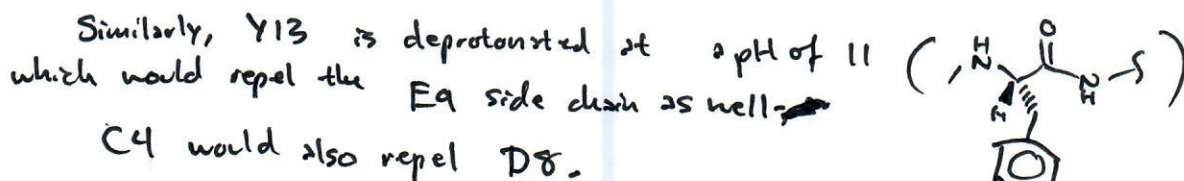 Similarly, Y13 is deprotonated at a pH of 11
which would repel the E9 side chain as well.
C4 would also repel D8.
H
N
O
N
H
H